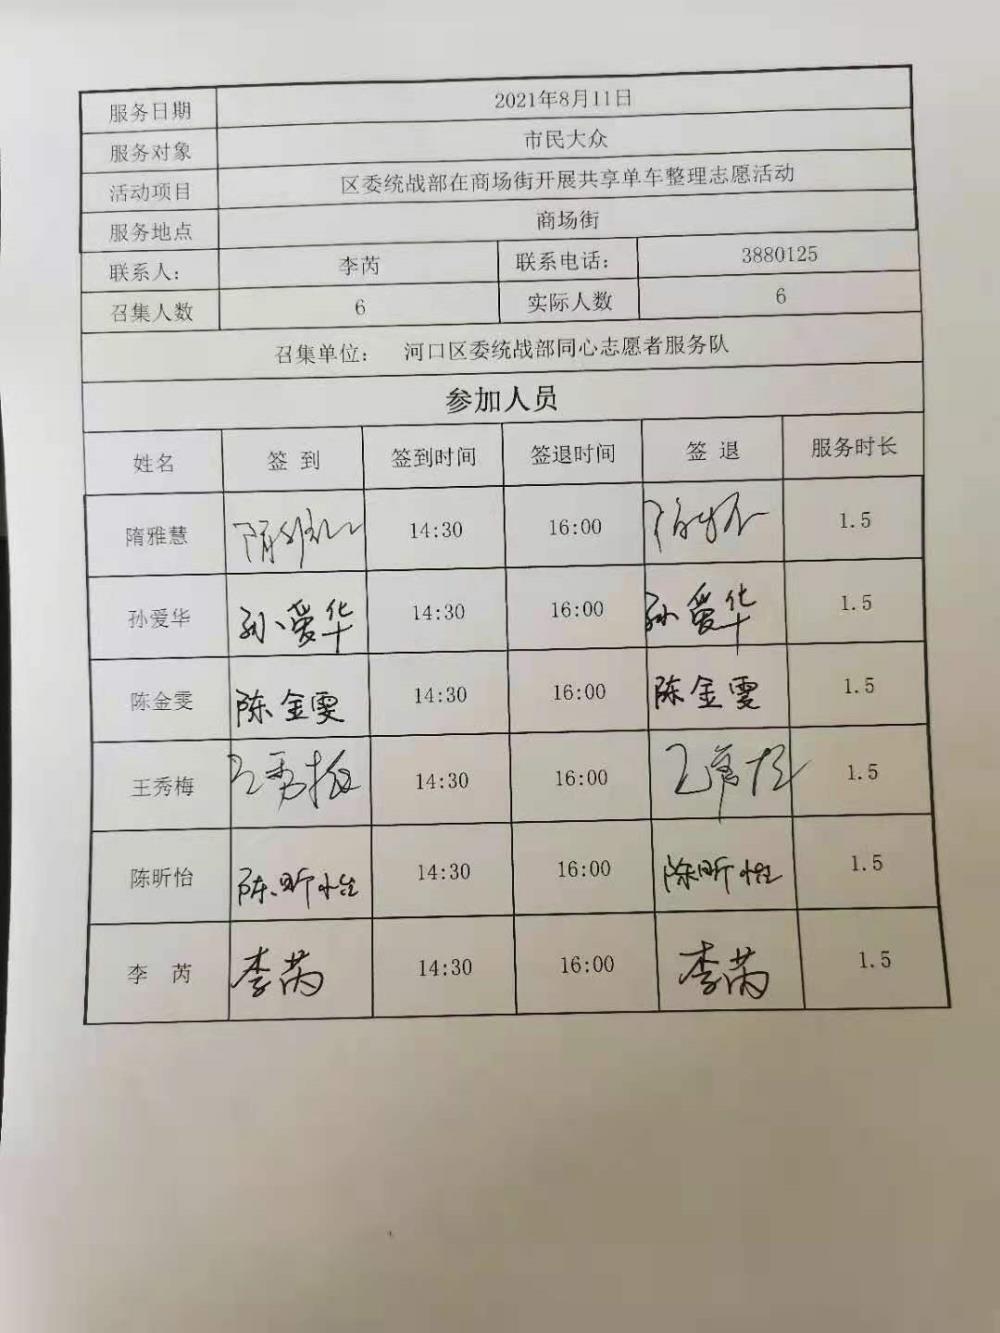 服务日期 2021年8月11日
服务对象 市民大众
活动项目 区委统战部在商场街开展共享单车整理志愿活动
服务地点 商场街
联系人: 李芮 联系电话: 3880125
召集人数 6 实际人数 6
召集单位: 河口区委统战部同心志愿者服务队
参加人员
姓名 签 到 签到时间 签退时间 签 退 服务时长
隋雅慧 14:30 16:00 1.5
孙爱华 孙爱华 14:30 16:00 孙爱华 1.5
陈金雯 陈金雯 14:30 16:00 陈金雯 1.5
王秀梅 14:30 16:00 1.5
陈昕怡 陈昕怡 14:30 16:00 陈昕怡 1.5
李 芮 李芮 14:30 16:00 李芮 1.5